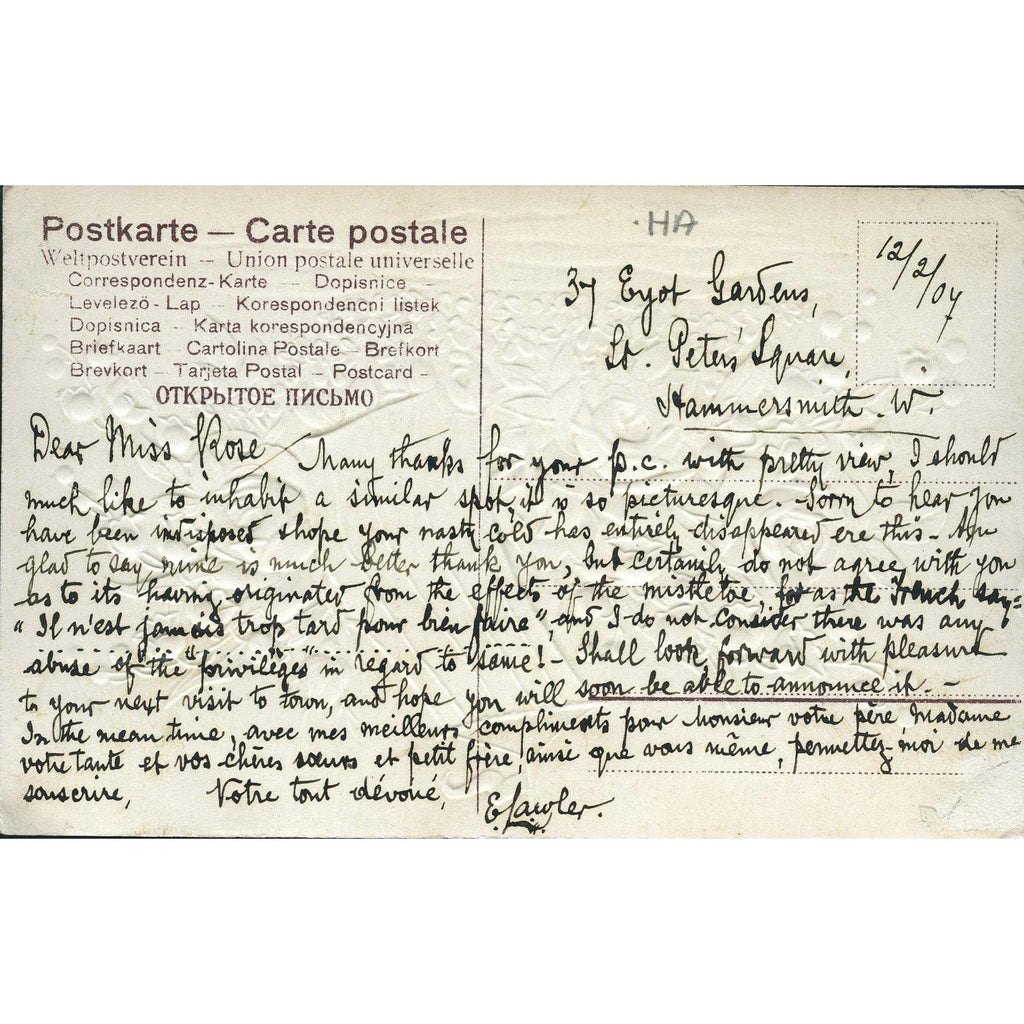 Postkarte — Carte postale
Weltpostverein — Union postale universelle
Correspondenz-Karte — Dopisnice —
Levelező - Lap — Korespondencni listek
Dopisnica — Karta korespondencyjna —
Briefkaart — Cartolina Postale — Brefkort
Brevkort — Tarjeta Postal — Postcard —
ОТКРЫТОЕ ПИСЬМО
HA
12/2/07
37 Eyot Gardens,
St. Peter's Square,
Hammersmith. W.
Dear Miss Rose Many thanks for your p.c. with pretty view, I should
much like to inhabit a similar spot, it is so picturesque. Sorry to hear you
have been indisposed & hope your nasty cold has entirely disappeared ere this - Am
glad to say mine is much better thank you, but certainly do not agree with you
as to its having originated from the effects of the mistletoe, for as the French say=
"Il n'est jamais trop tard pour bien faire", and I do not consider there was any
abuse of the "privileges" in regard to same! - Shall look forward with pleasure
to your next visit to town, and hope you will soon be able to announce it. -
In the mean time, avec mes meilleurs compliments pour Monsieur votre père, Madame
votre tante et vos chères sœurs et petit frère, ainsi que vous même, permettez-moi de me
souscrire, Votre tout dévoué,
E. Lawler.